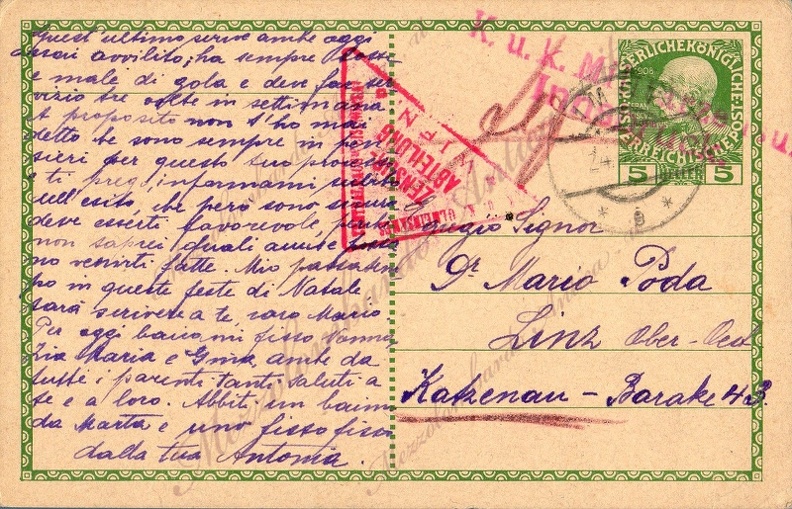 Quest'ultimo serve anche oggi
assai avvilito; ha sempre tosse
e male di gola e deve far ser
vizio tre volte in settimana
A proposito non t'ho mai
detto che sono sempre in pen
sieri per questo tuo processo
ti prego, informami subito
sull'esito che però sono sicura
deve esserti favorevole, perchè
non saprei quali accuse
no venirti fatte. Mio
in queste feste di Natale
sarà scrivere a te, caro Mario
Per oggi baciami fisso Nonna
Zia Maria e Gina, anche da
tutti i parenti tanti saluti a
te e a loro. Abbiti un bacino
da Marta e uno fisso fisso
dalla tua Antonia.
K. u. K. Militärzensur
Innsbruck
ZENSUR
ABTEILUNG
WIEN
KAISERLICHEKÖNIGLICHE
ÖSTERREICHISCHE POST
1908
5 HELLER 5
Egregio Signor
Dr. Mario Poda
Linz Ober-Oest
Katzenau - Barake 43.
Mezzolombardo
Mezzolombardo